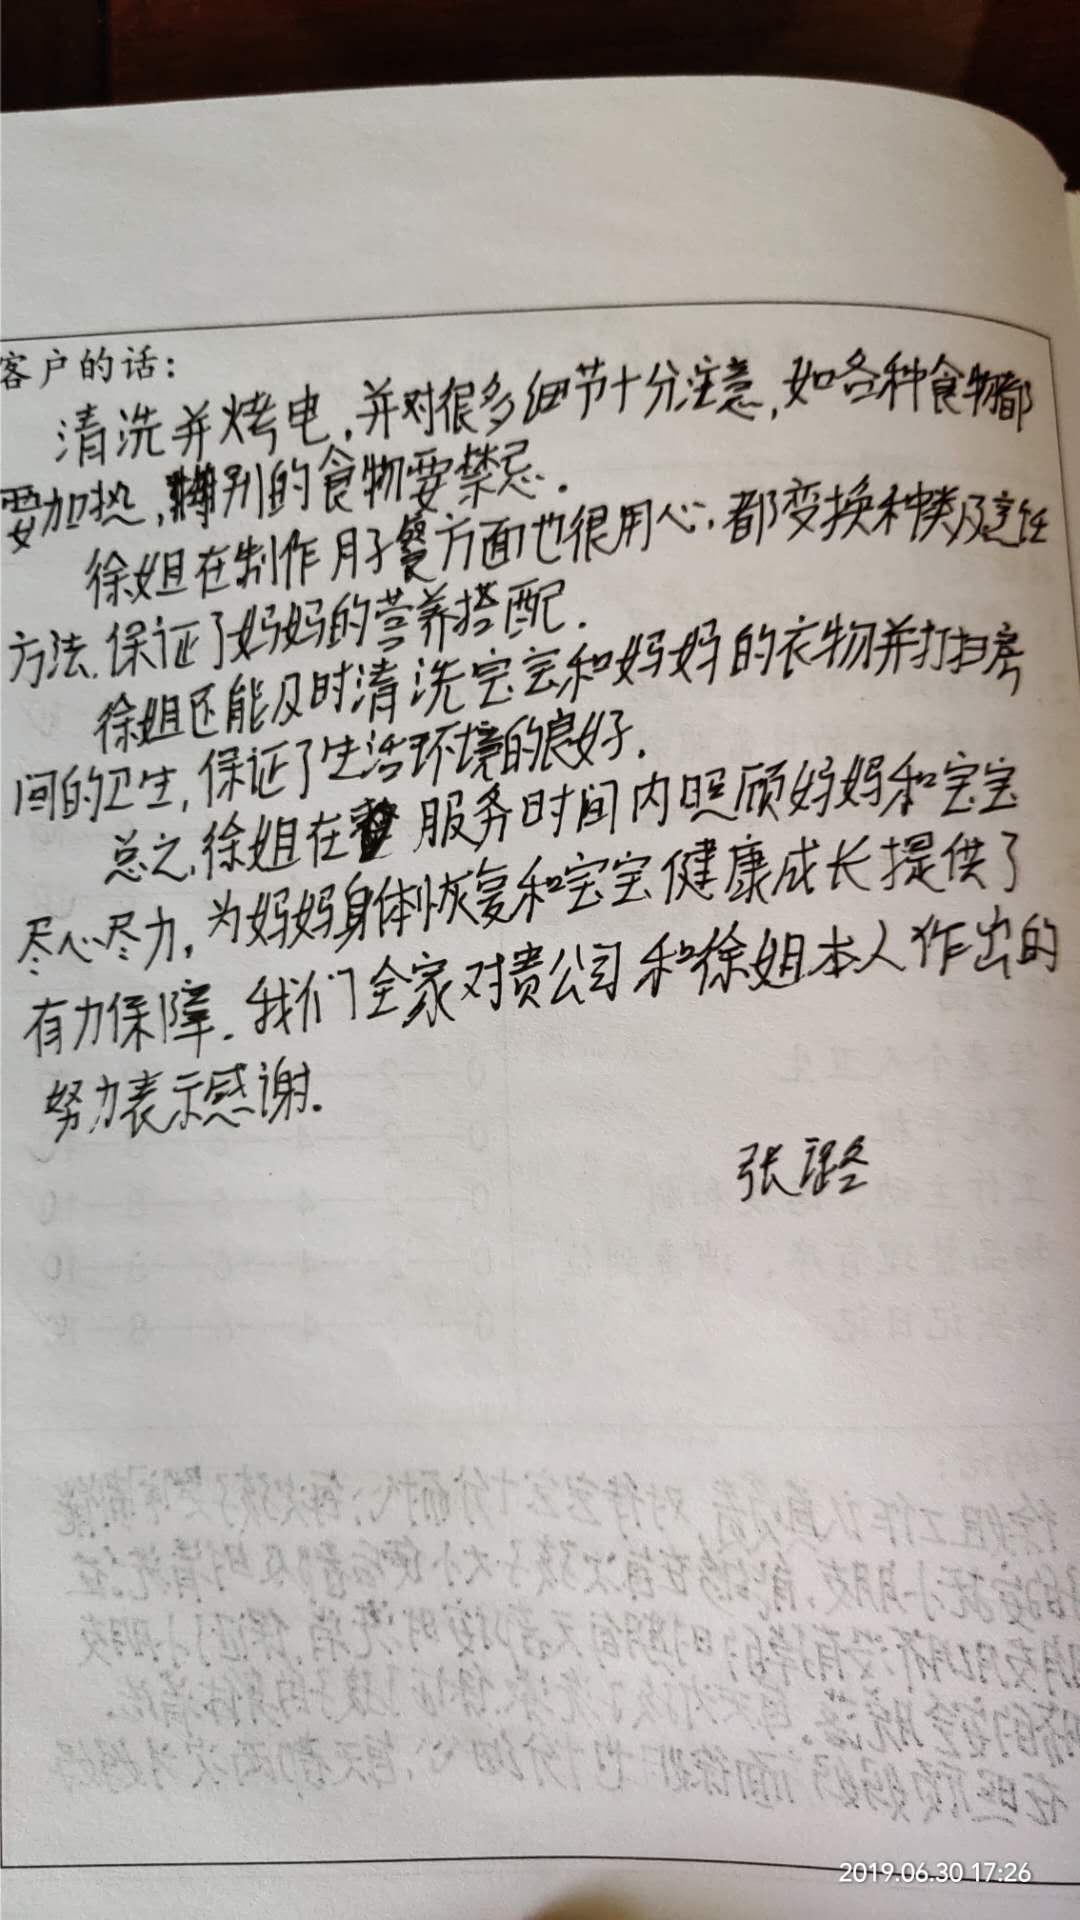 客户的话：
清洗并烤电，并对很多细节十分注意，如各种食物都
要加热，特别的食物要禁忌．
徐姐在制作月子餐方面也很用心，都变换种类及烹饪
方法，保证了妈妈的营养搭配．
徐姐还能及时清洗宝宝和妈妈的衣物并打扫房
间的卫生，保证了生活环境的良好．
总之，徐姐在 服务时间内照顾妈妈和宝宝
尽心尽力，为妈妈身体恢复和宝宝健康成长提供了
有力保障．我们全家对贵公司和徐姐本人作出的
努力表示感谢．
张璐
2019.06.30 17:26